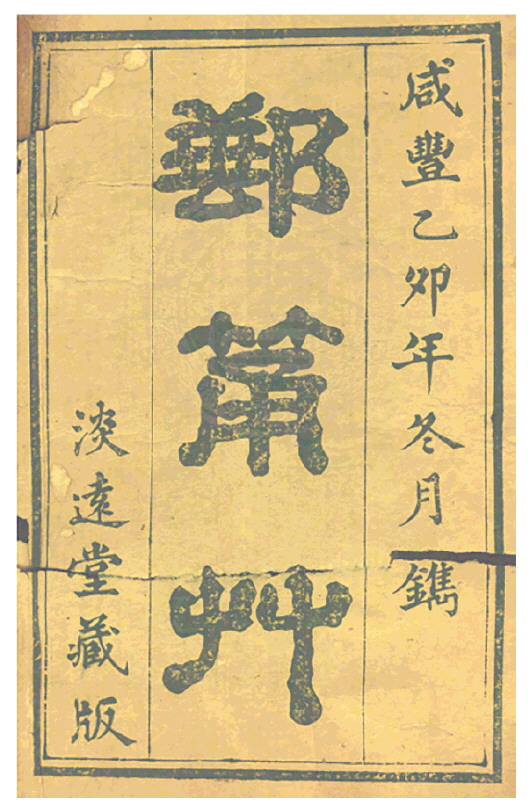 咸豐乙卯年冬月鐫
郵筩艸
淡遠堂藏版